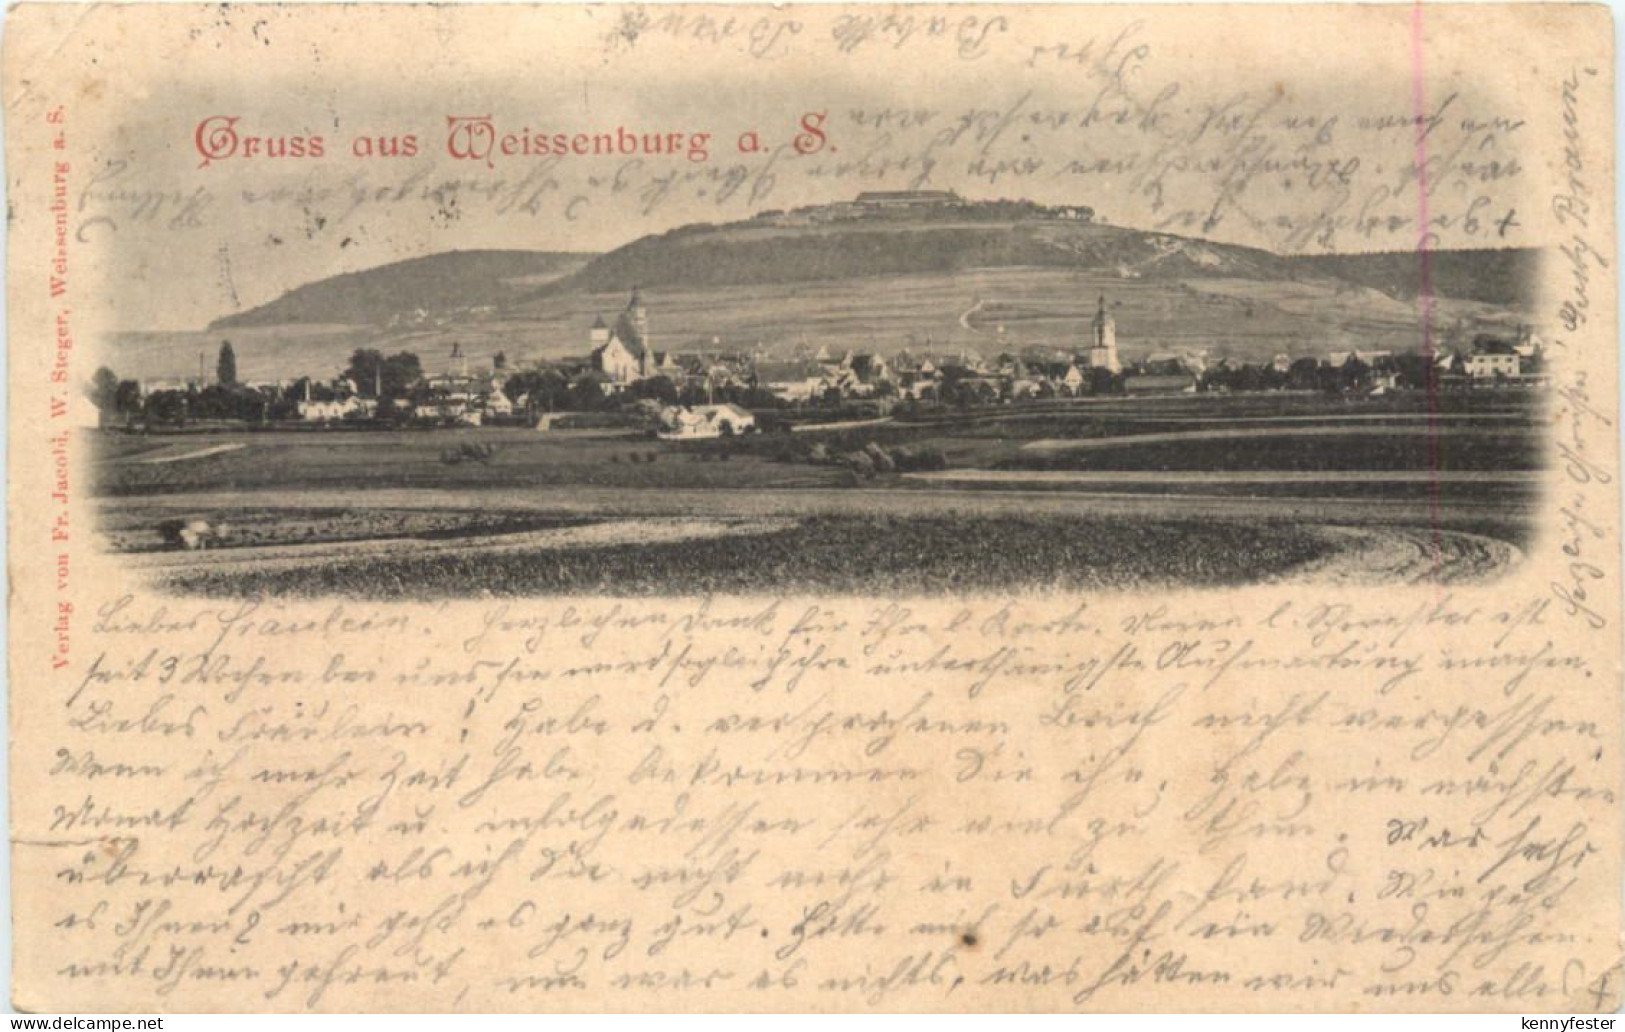 Gruss aus Weissenburg a. S.
Verlag von Fr. Jacobi, W. Steger, Weissenburg a. S.
Liebes Fräulein! Herzlichen Dank für Ihre l. Karte. Meine l. Schwester ist
seit 3 Wochen bei uns, sie wird sogleich ihre unterthänigste Aufwartung machen.
Liebes Fräulein! Habe d. versprochenen Brief nicht vergessen
Wenn ich mehr Zeit habe bekommen Sie ihn. Habe im nächsten
Monat Hochzeit u. infolgedessen sehr viel zu thun. War sehr
überrascht als ich Sie nicht mehr in Fürth fand. Wie geht
es Ihnen? mir geht es ganz gut. Hätte mich so auf ein Wiedersehen
mit Ihnen gefreut, nun war es nichts, was hätten wir uns alles
Herzliche Grüße Gusty Braun.
Ihre Babette Braun
kennyfester